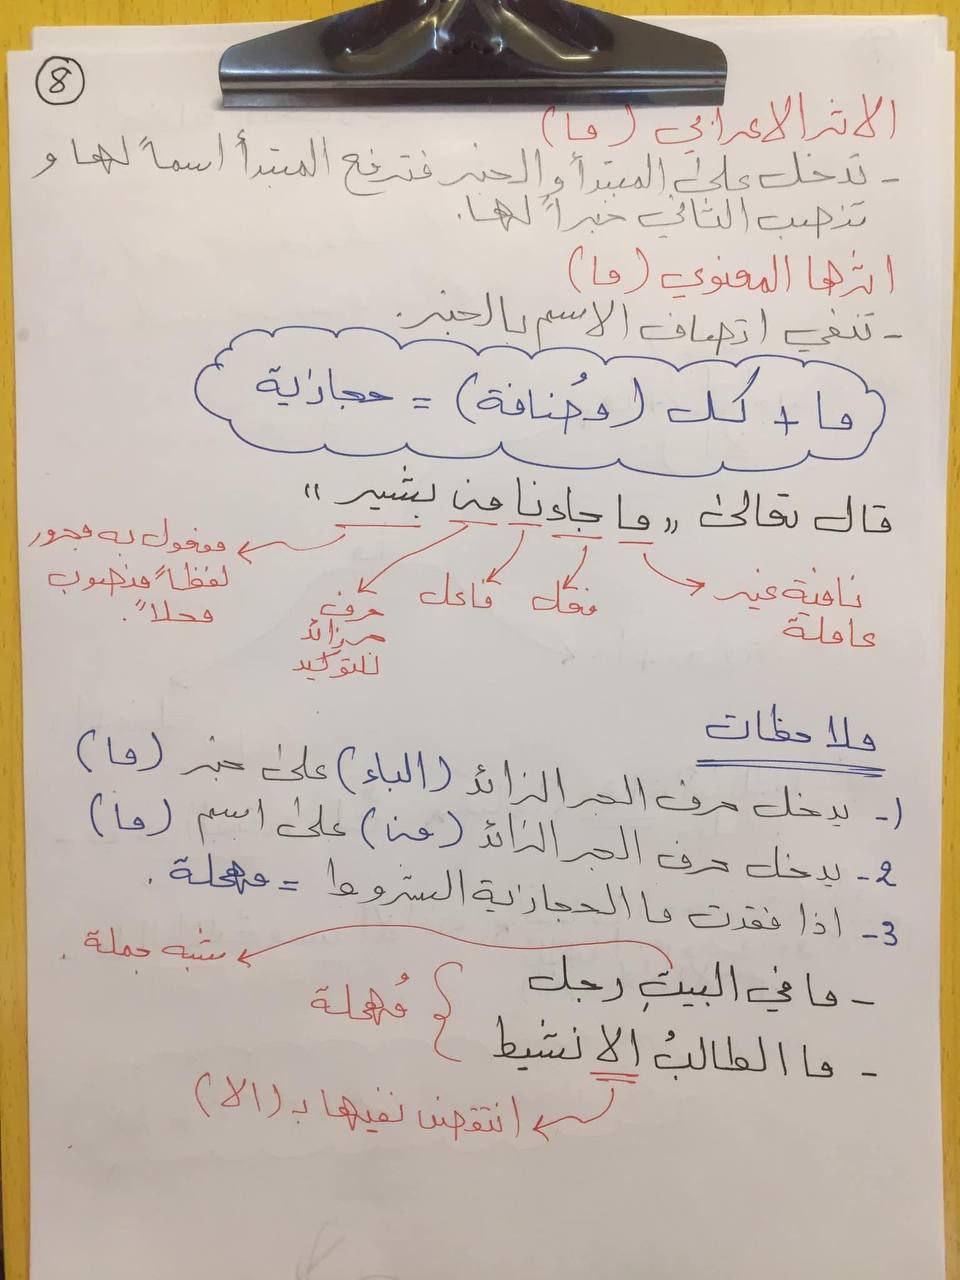 8
الاثر الاعرابي (ما)
- تدخل على المبتدأ والخبر فترفع المبتدأ اسماً لها و
تنصب الثاني خبراً لها.
اثرها المعنوي (ما)
- تنفي اتصاف الاسم بالخبر.
ما + كل (مُضافة) = حجازية
قال تعالى " ما جاءنا من بشير "
نافية غير عاملة
فعل
فاعل
حرف جر زائد للتوكيد
مفعول به مجرور
لفظاً منصوب
محلاً.
ملاحظات
1- يدخل حرف الجر الزائد (الباء) على خبر (ما)
2- يدخل حرف الجر الزائد (من) على اسم (ما)
3- اذا فقدت ما الحجازية الشروط = مهملة.
شبه جملة.
- ما في البيتِ رجل
مُهملة
- ما الطالبُ الا نشيط
انتقض نفيها بـ (الا)